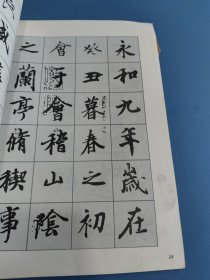 永和九年歲在
癸丑暮春之初
會于會稽山陰
之蘭亭脩禊事